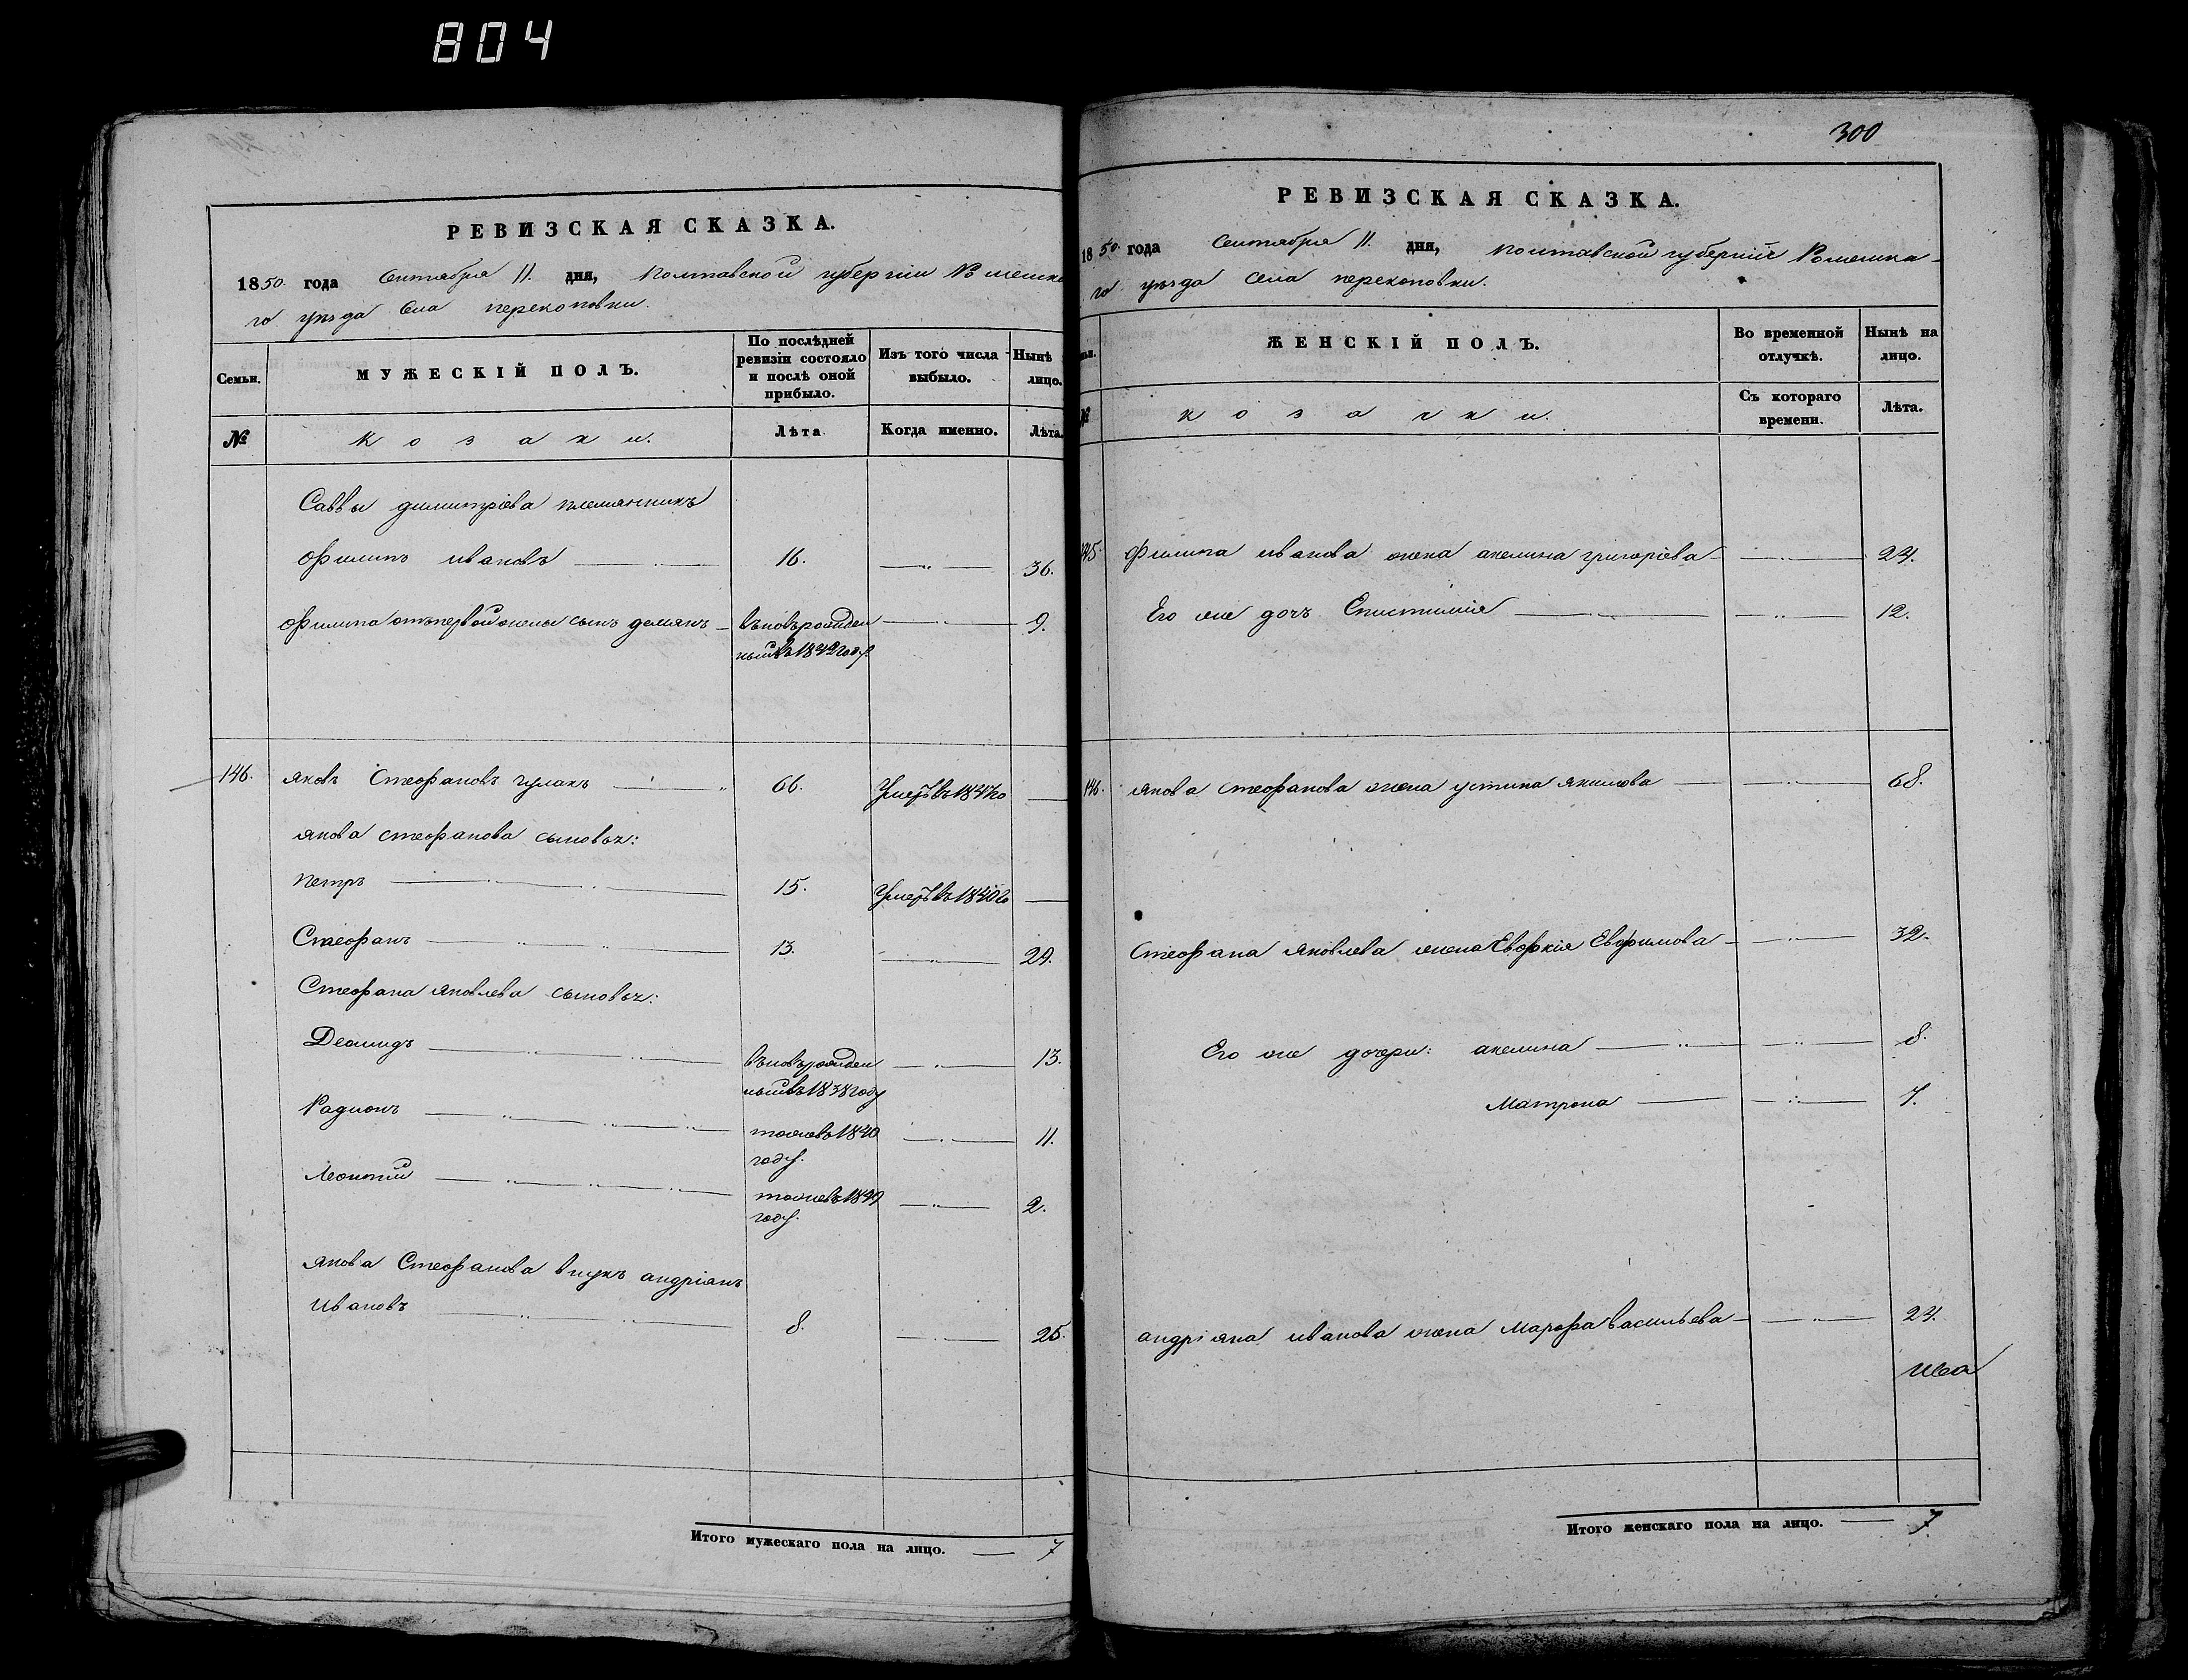 804
РЕВИЗСКАЯ СКАЗКА.
1850. года Сентября 11. дня, Полтавской губерніи Роменска
го уезда Села перекоповки.
Семьи.
МУЖЕСКІЙ ПОЛЪ.
По послѣдней ревизіи состояло и послѣ оной прибыло.
Изъ того числа выбыло.
Нынѣ лицо.
№
козаки.
Лѣта
Когда именно.
Лѣта.
Саввы димитріева племянникъ
Филипъ ивановъ 16. 36.
Филипа отъ первой жены сынъ демянъ вновъ рожден 9.
ный въ 1842 году.
146. яковъ Стефановъ чумакъ 66. Умеръ въ 1847 го
якова стефанова сыновья:
петръ 15. Умеръ въ 1840 го
Стефанъ 13. 29.
Стефана яковлева сыновья:
Деомидъ вновъ рожден 13.
ный въ 1838 году
Радионъ тоже въ 1840 11.
году.
Леонтій тоже въ 1849 2.
году.
якова Стефанова внукъ андріанъ
ивановъ 8. 25.
Итого мужескаго пола на лицо. 7
300
РЕВИЗСКАЯ СКАЗКА.
1850. года Сентября 11. дня, полтавской губерній Роменска
го уезда Села перекоповки.
ЖЕНСКІЙ ПОЛЪ.
Во временной отлучкѣ.
Нынѣ на лицо.
№
козачки.
Съ котораго времени.
Лѣта.
145. Филипа иванова жена акелина григоріева 24.
Его же дочь Епистимія 12.
146. якова стефанова жена устина якимова 68.
Стефана яковлева жена Евфкія Евфимова 32.
Его же дочери: акелина 8.
Матрона 7.
андріяна иванова жена Марфа васильева 24.
Итого женскаго пола на лицо. 7